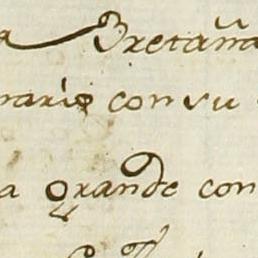 a Bretaña
nario con su
a grande con